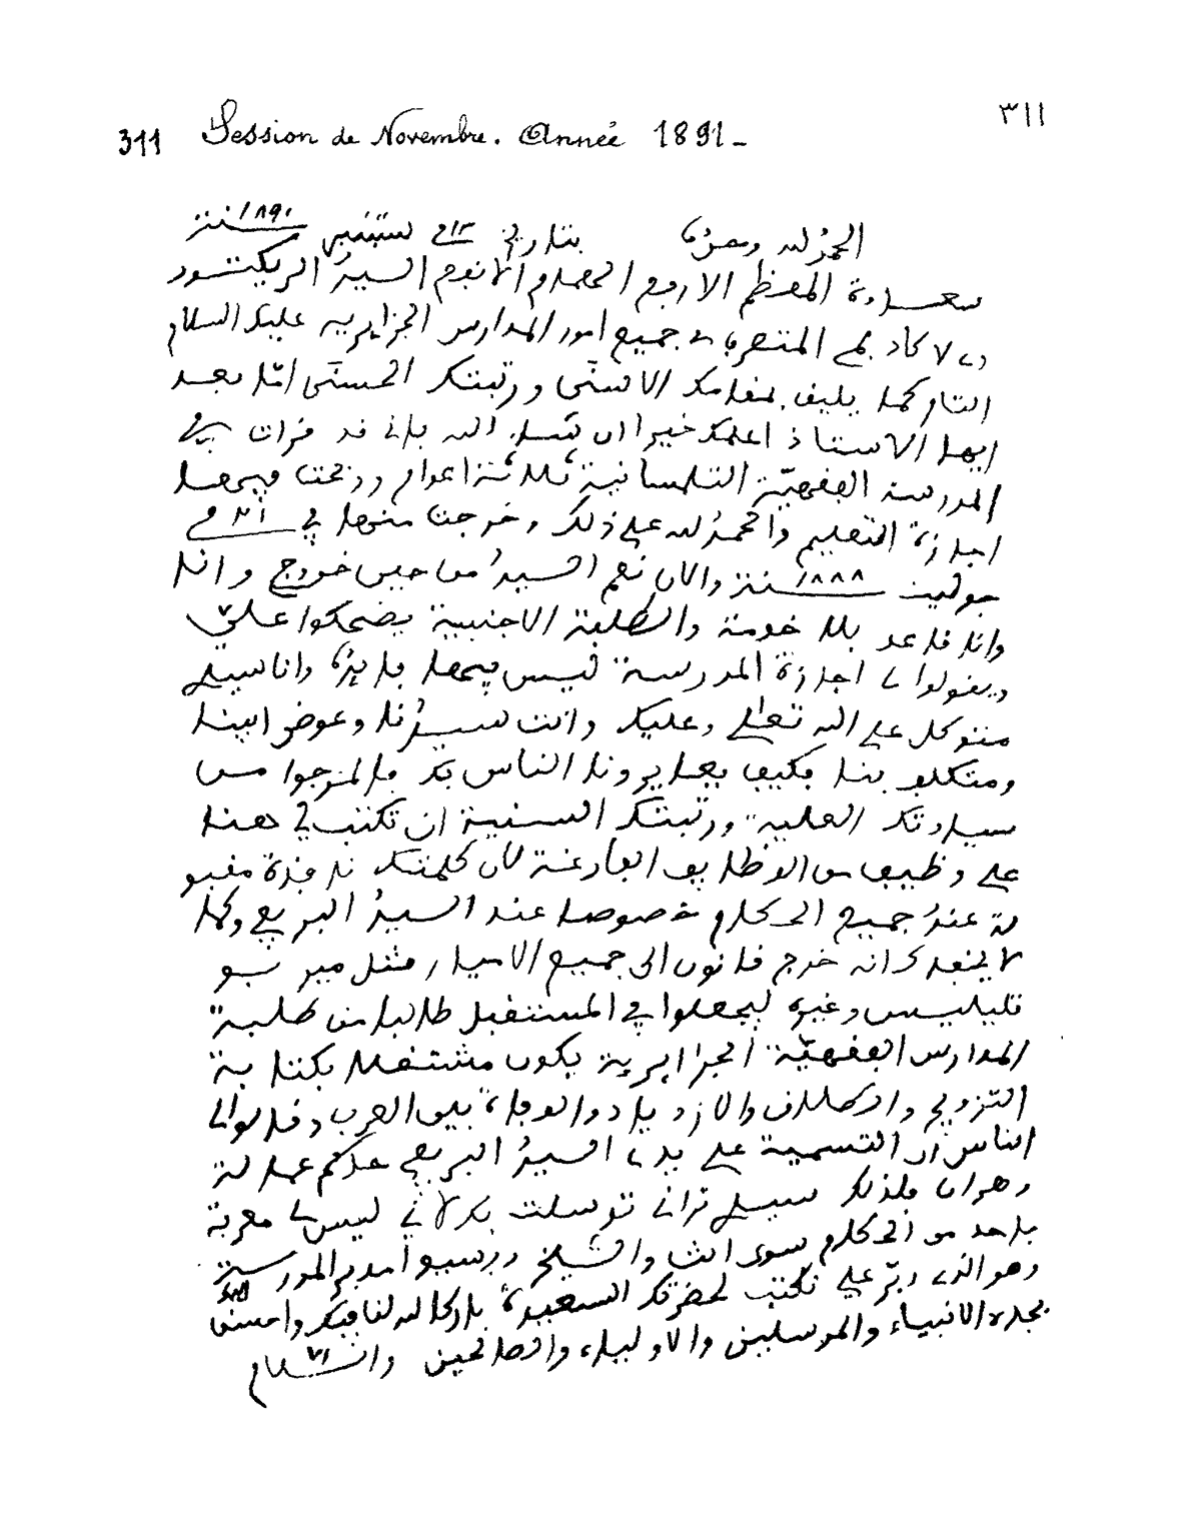 ٣١١
311 Session de Novembre. Année 1891-
الحمد لله وحده بتاريخ ستنبر سنة ١٨٩٠
سعادة المعظم الارفع الهمام الانجم السيد الريكتور
دي لاكاد يمي المتصرف في جميع امور المدارس الجزايرية عليك السلام
التام كما يليق بمقامك الاسنى ورتبتك الحسنى امّا بعد
ايها الاستاذ اعلمك خيرا ان شاء الله باني قد قرات في
المدرسة الفقهيّة التلمسانية ثلاثة اعوام وربحت فيها
اجازة التعليم والحمد لله على ذلك وخرجت منها في
جوليت سنة ١٨٨٨ والان نعم السيد من حين خروجي وانا
وانا قاعد بلا خدمة والطلبة الاجنبية يضحكوا عليّ
ويقولوا لي اجازة المدرسة ليس فيها فايدة وانا سيدي
متوكل على الله تعالى وعليك وانت سيدنا وعوض ابينا
ومتكلف بنا فكيف بعد يرونا الناس بك فالمرجوا من
سيادتك العلية ورتبتك السنية ان تكتب لي هنا
على وظيف من الوظايف الفارغة لان كلمتك نافذة مقبو
لة عند جميع الحكام خصوصا عند السيد البريفي وكما
لا يخفاك انه خرج قانون الى جميع الاميار مثل مير سبو
تليليس وغيره ليجعلوا في المستقبل طالبا من طلبة
المدارس الفقهيّة الجزايرية يكون مشتغلا بكتابة
التزويج والطلاق والازدياد والوفاة بين العرب وقالوا لي
الناس ان التسمية على يد السيد البريفي حاكم عمالة
وهران فلذلك سيدي تراني توسلت بك لاني ليس لي معرفة
باحد من الحكام سوى انت والشيخ مدير المدرسة
وهو الذي دبّر علي نكتب لحضرتك السعيدة بارك الله لنا فيك واحسن اليك
بجاه الانبياء والمرسلين والاولياء والصالحين والسلام